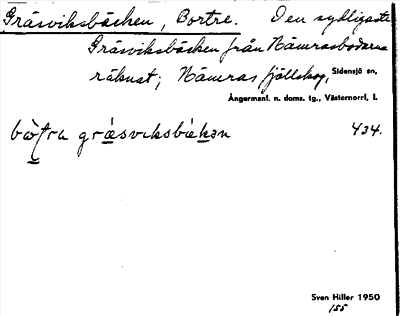 Gräsviksbäcken, Bortre. Den sydligaste
Gräsviksbäcken från Nämrasbodarna
räknat; Nämras fjällskog, Sidensjö sn,
Ångermanl. n. doms. tg., Västernorrl. l.
bòʃtra grǽsviksbèkən 434.
Sven Hiller 1950
155